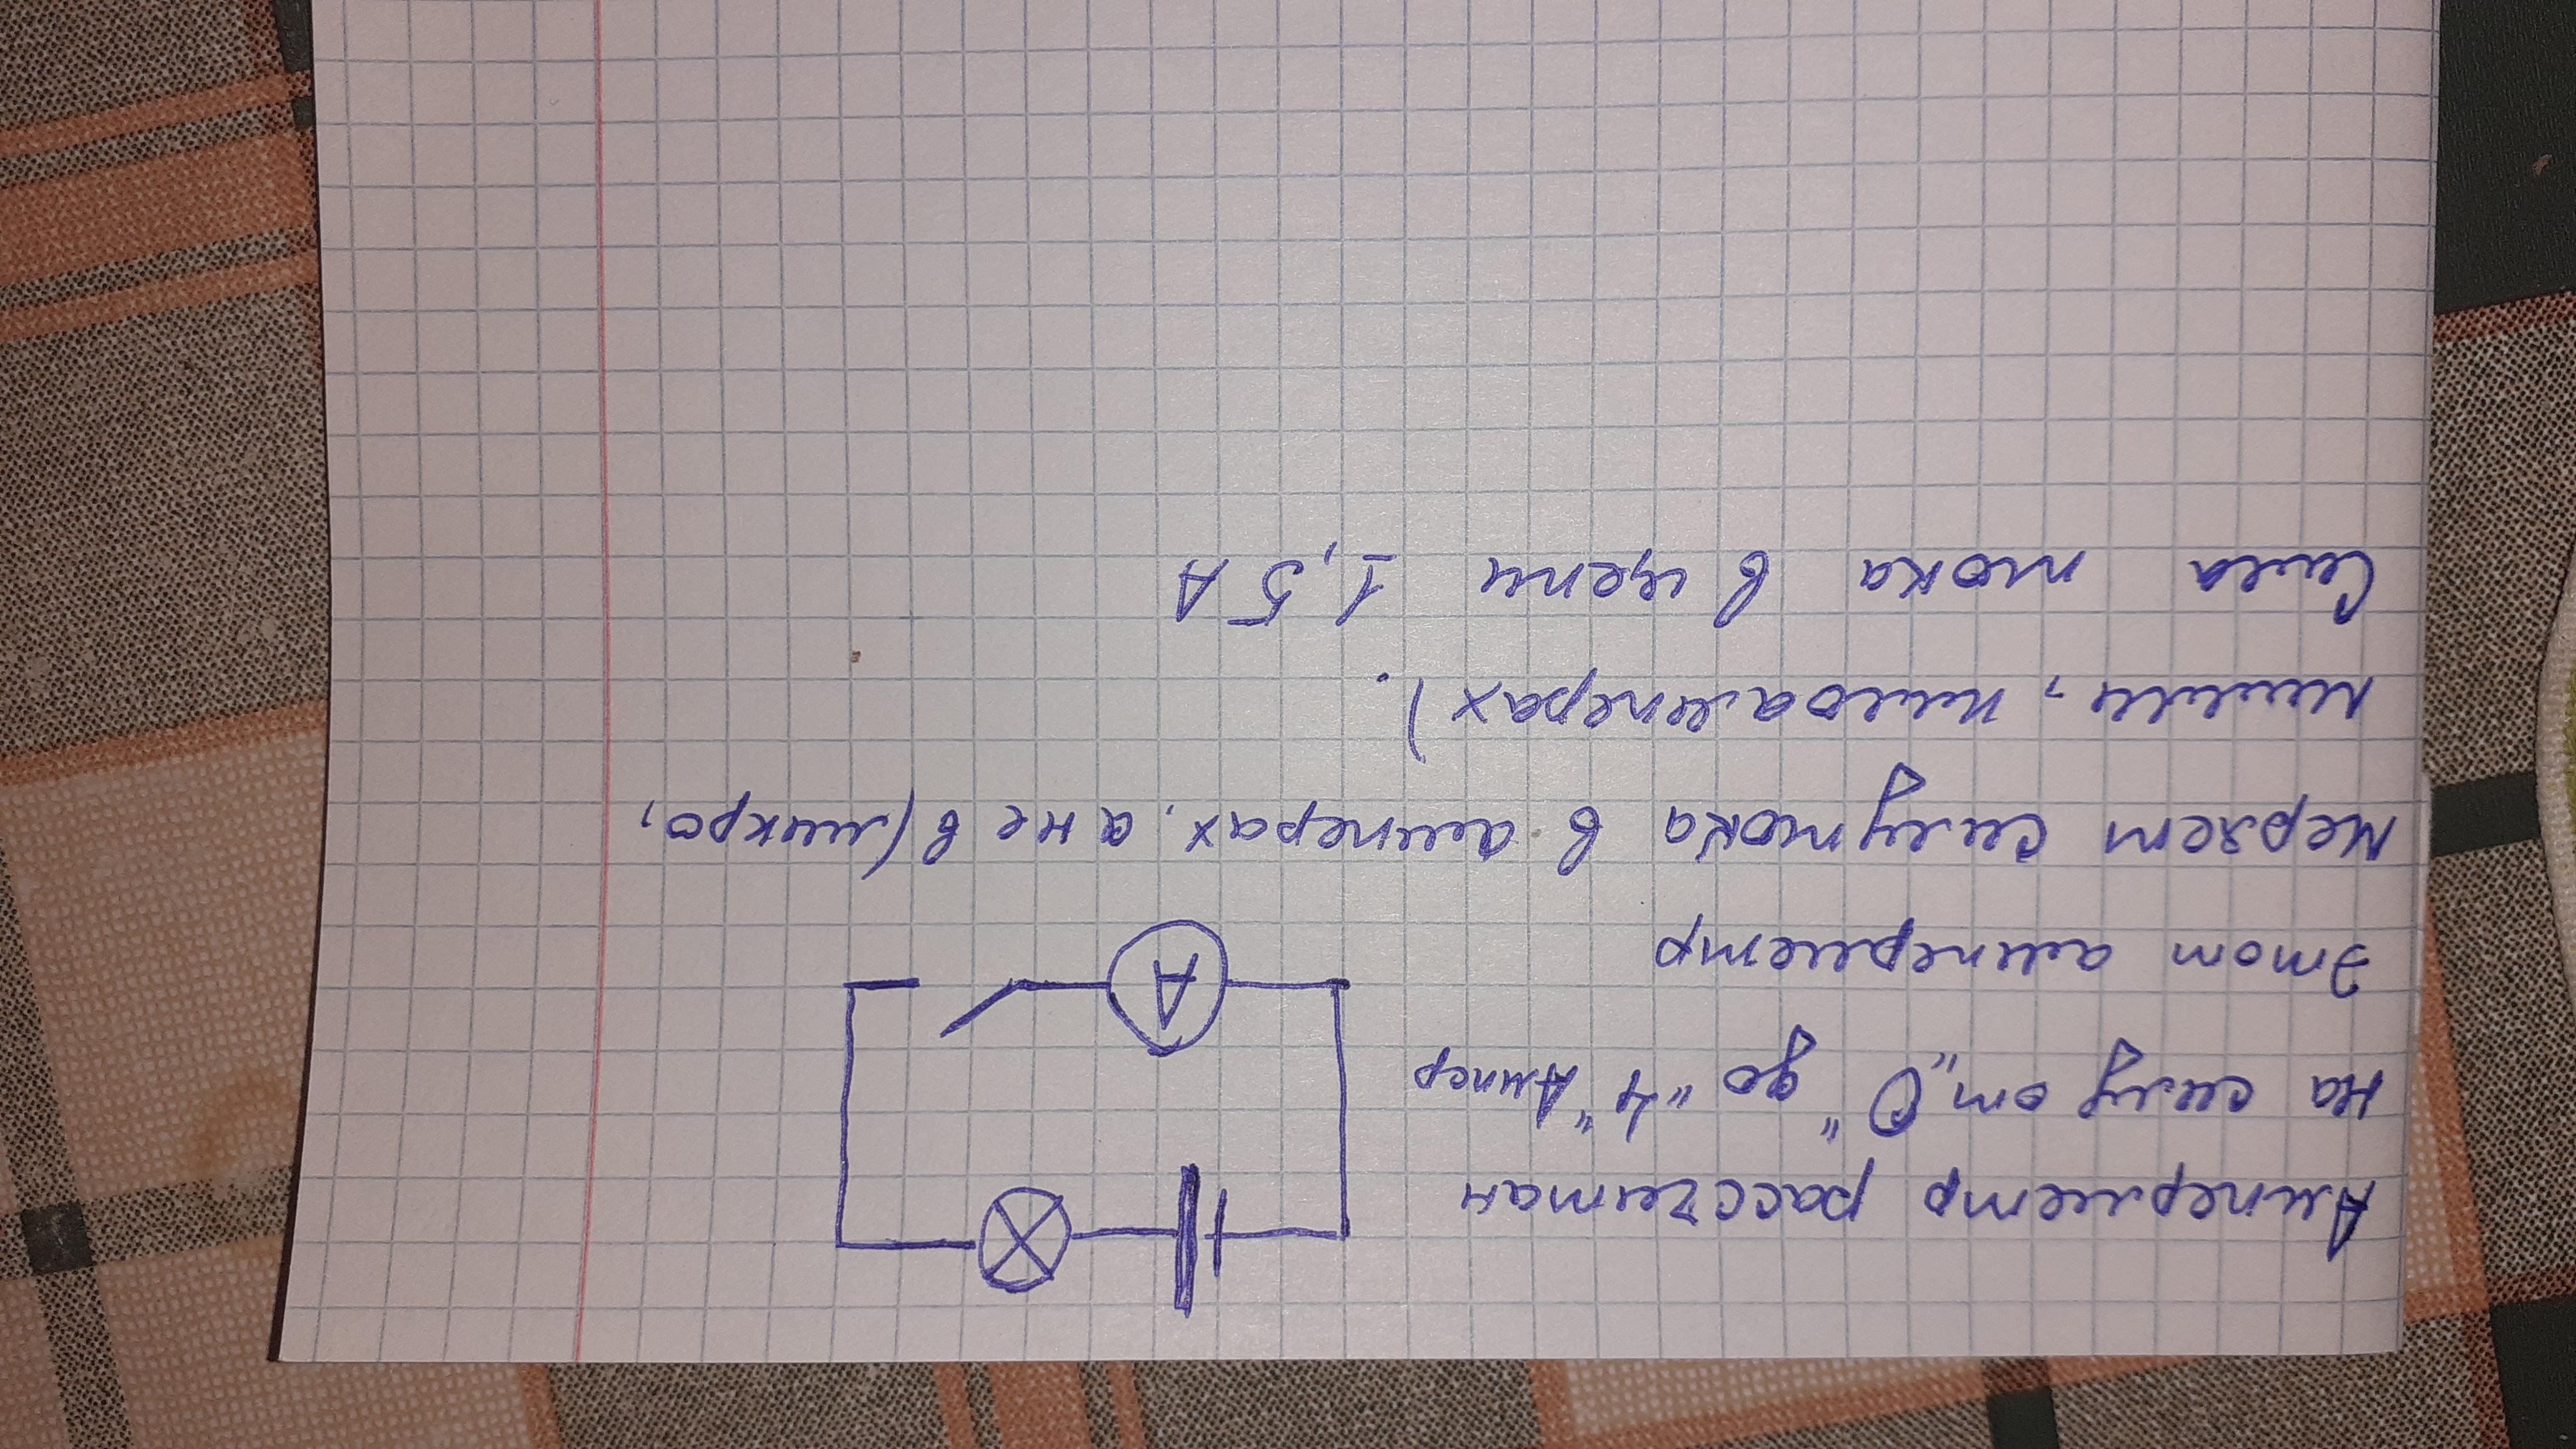 Амперметр рассчитан
на силу от „0" до "4" Ампер
Этот амперметр
меряет силу тока в амперах, а не в (микро,
милли, килоамперах).
Сила тока в цепи 1,5 А
A